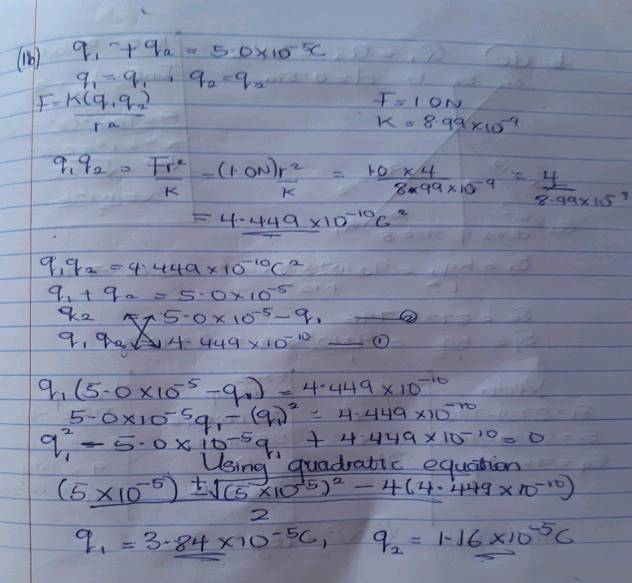 (1b) q₁ + q₂ = 5.0×10⁻⁵C
q₁ = q₁, q₂ = q₂
F = K(q₁q₂)/r² F = 1.0N
K = 8.99×10⁻⁹
q₁q₂ = Fr²/K = (1.0N)r²/K = 1.0 × 4/8.99×10⁻⁹ = 4/8.99×10⁻⁹
= 4.449 × 10⁻¹⁰C²
q₁q₂ = 4.449 × 10⁻¹⁰C²
q₁ + q₂ = 5.0×10⁻⁵
q₂ = 5.0×10⁻⁵ - q₁ — ②
q₁q₂ = 4.449×10⁻¹⁰ — ①
q₁(5.0×10⁻⁵ - q₁) = 4.449×10⁻¹⁰
5.0×10⁻⁵q₁ - (q₁)² = 4.449×10⁻¹⁰
q₁² - 5.0×10⁻⁵q₁ + 4.449×10⁻¹⁰ = 0
Using quadratic equation
(5×10⁻⁵) ± √(5×10⁻⁵)² - 4(4.449×10⁻¹⁰)/2
q₁ = 3.84×10⁻⁵C, q₂ = 1.16×10⁻⁵C